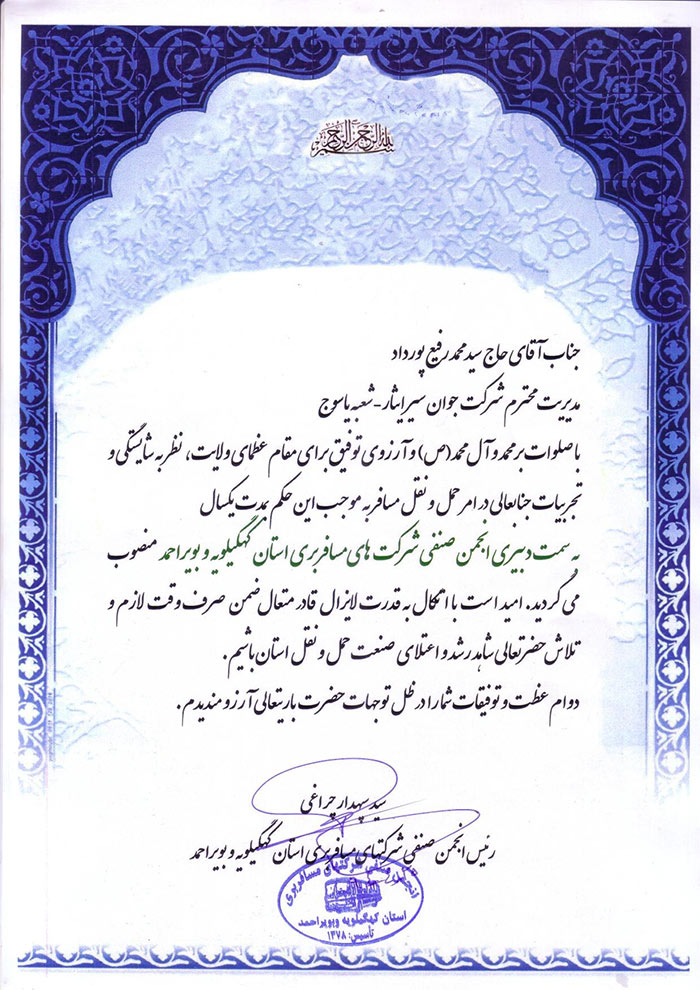 بسم الله الرحمن الرحیم
جناب آقای حاج سید محمد رفیع پورداد
مدیریت محترم شرکت جوان سیر ایثار - شعبه یاسوج
با صلوات بر محمد و آل محمد (ص) و آرزوی توفیق برای مقام عظمای ولایت، نظر به شایستگی و
تجربیات جنابعالی در امر حمل و نقل مسافر به موجب این حکم بمدت یکسال
به سمت دبیری انجمن صنفی شرکت های مسافربری استان کهگیلویه و بویراحمد منصوب
می گردید. امید است با اتکال به قدرت لایزال قادر متعال ضمن صرف وقت لازم و
تلاش حضرتعالی شاهد رشد و اعتلای صنعت حمل و نقل استان باشیم.
دوام عظت و توفیقات شما را در ظل توجهات حضرت باریتعالی آرزومندیدم.
سید سپهدار چراغی
رئیس انجمن صنفی شرکتهای مسافربری استان کهگیلویه و بویراحمد
انجمن صنفی شرکتهای مسافربری
استان کهگیلویه وبویراحمد
تأسیس: ۱۳۷۸